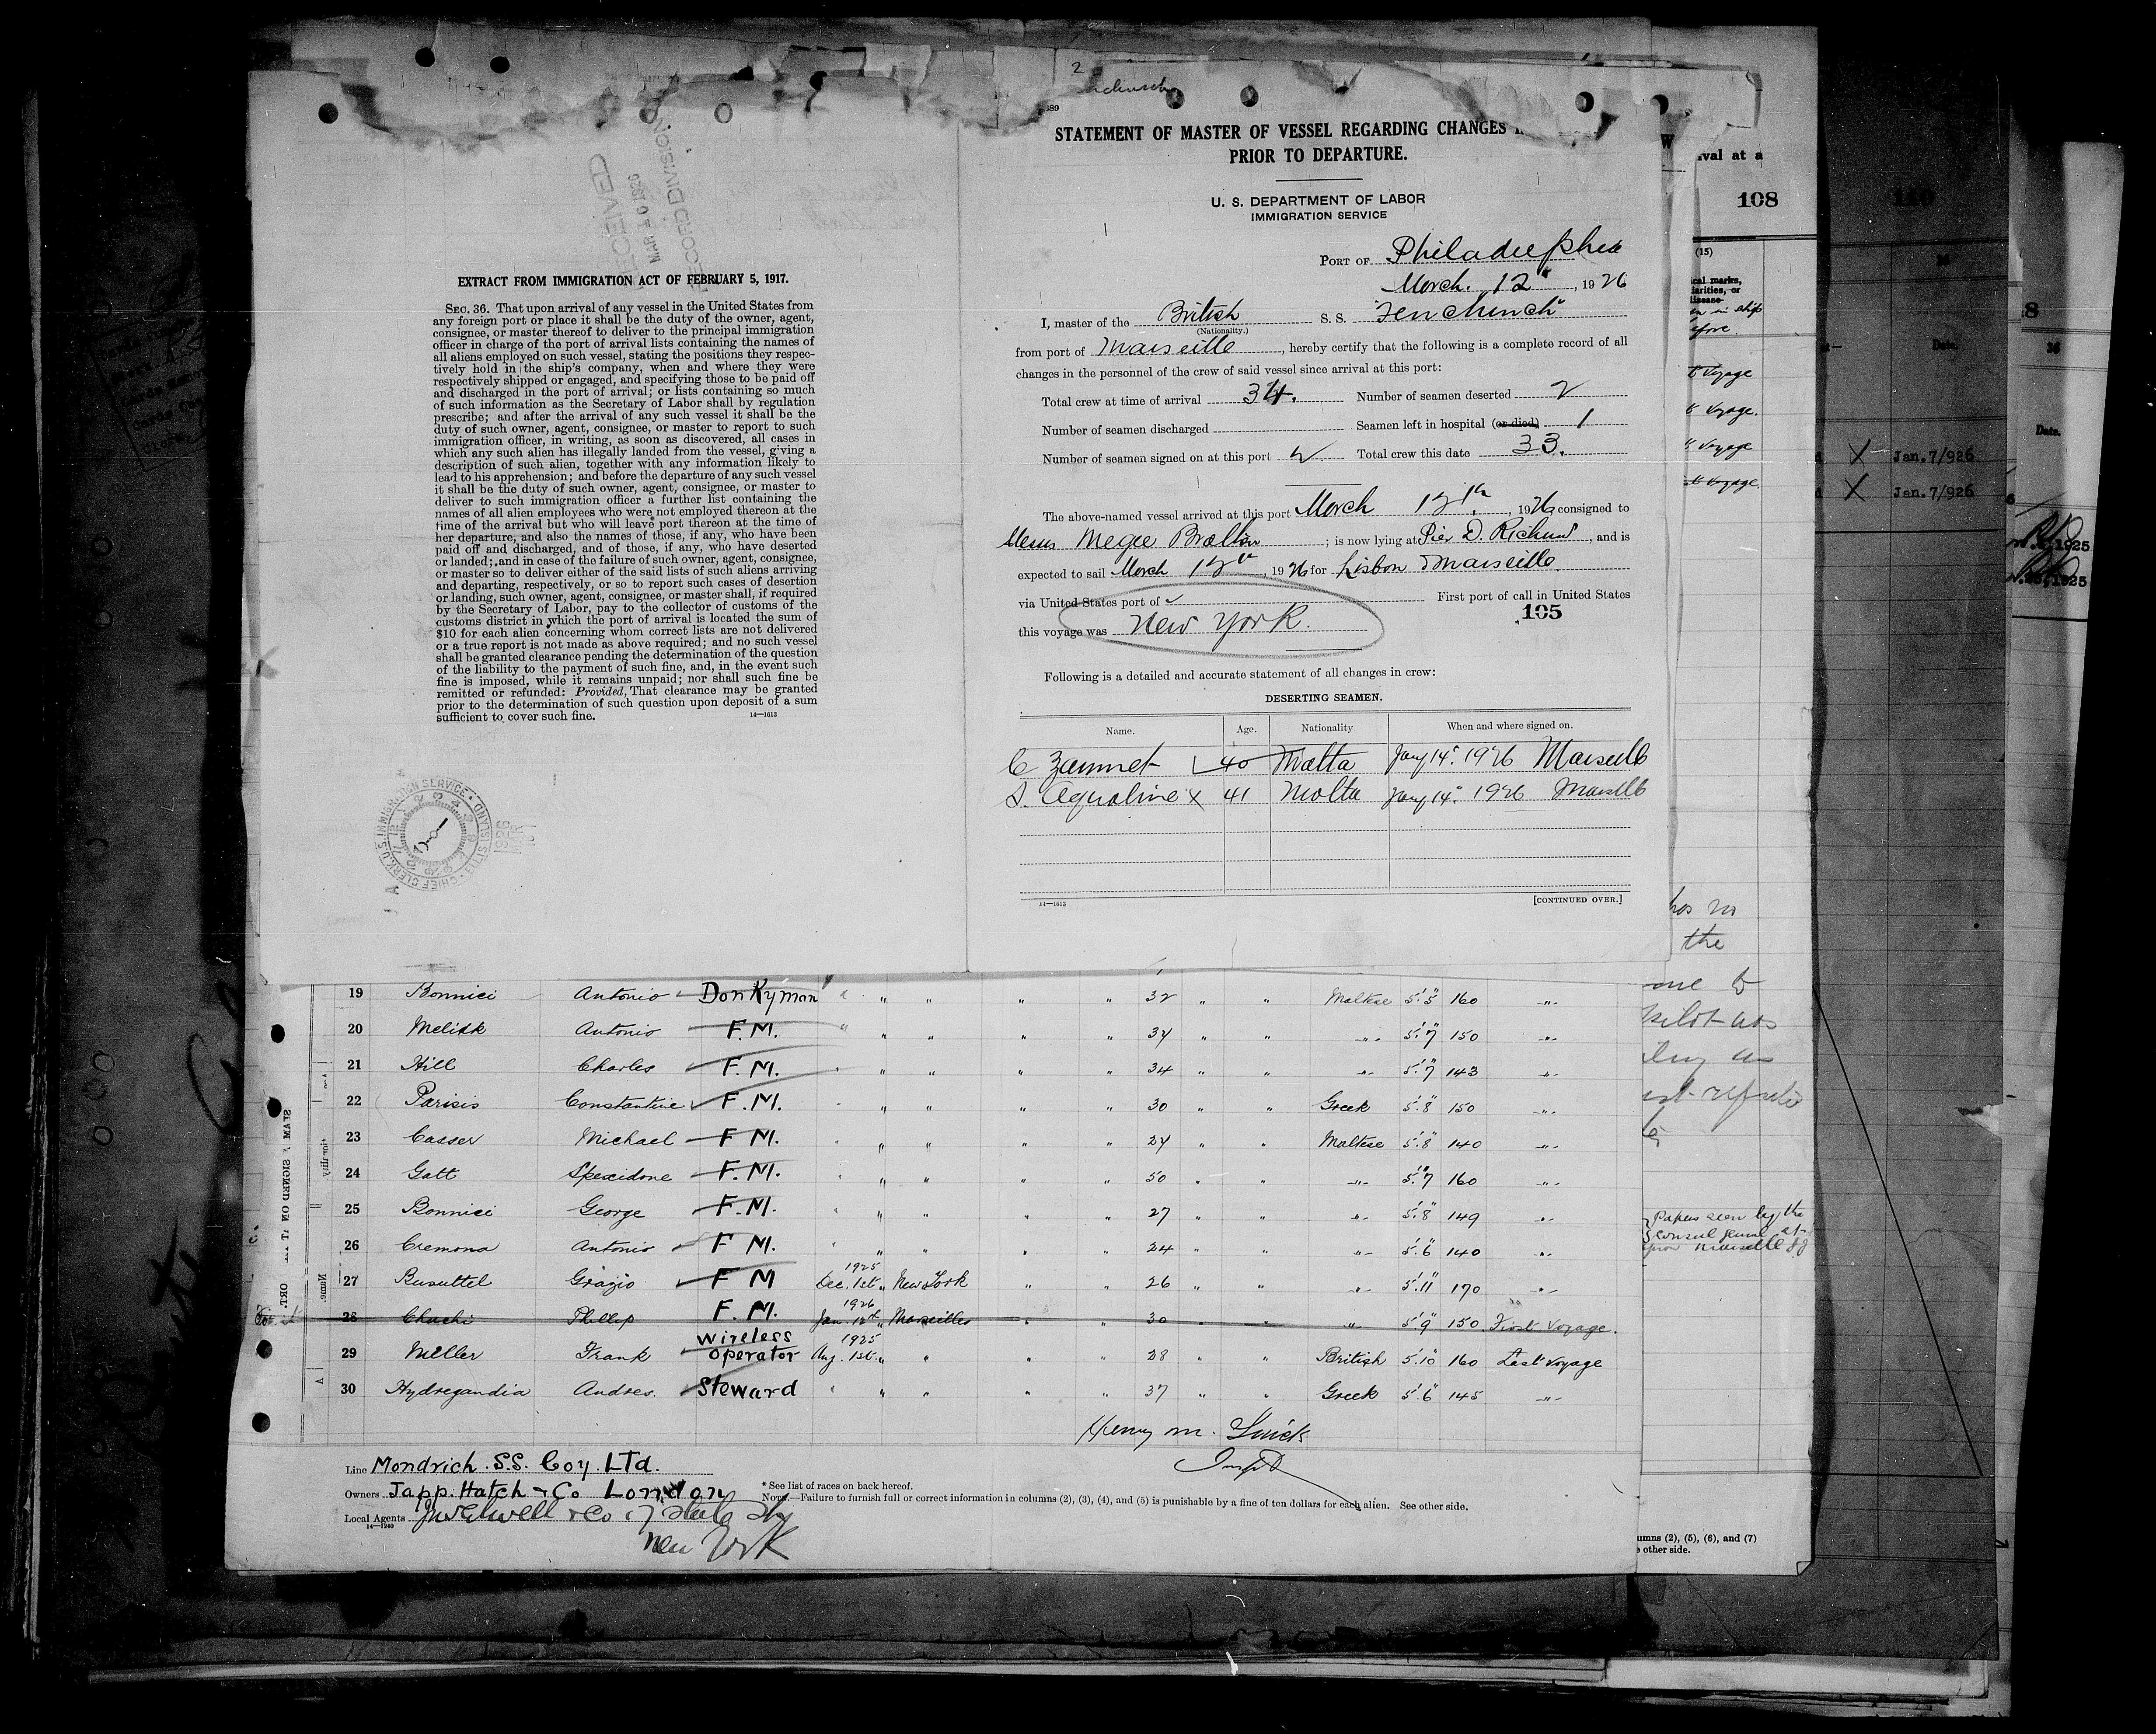 RECEIVED
MAR 1926
RECORD DIVISION
EXTRACT FROM IMMIGRATION ACT OF FEBRUARY 5, 1917.
SEC. 36. That upon arrival of any vessel in the United States from
any foreign port or place it shall be the duty of the owner, agent,
consignee, or master thereof to deliver to the principal immigration
officer in charge of the port of arrival lists containing the names of
all aliens employed on such vessel, stating the positions they respec-
tively hold in the ship's company, when and where they were
respectively shipped or engaged, and specifying those to be paid off
and discharged in the port of arrival; or lists containing so much
of such information as the Secretary of Labor shall by regulation
prescribe; and after the arrival of any such vessel it shall be the
duty of such owner, agent, consignee, or master to report to such
immigration officer, in writing, as soon as discovered, all cases in
which any such alien has illegally landed from the vessel, giving a
description of such alien, together with any information likely to
lead to his apprehension; and before the departure of any such vessel
it shall be the duty of such owner, agent, consignee, or master to
deliver to such immigration officer a further list containing the
names of all alien employees who were not employed thereon at the
time of the arrival but who will leave port thereon at the time of
her departure, and also the names of those, if any, who have been
paid off and discharged, and of those, if any, who have deserted
or landed; and in case of the failure of such owner, agent, consignee,
or master so to deliver either of the said lists of such aliens arriving
and departing, respectively, or so to report such cases of desertion
or landing, such owner, agent, consignee, or master shall, if required
by the Secretary of Labor, pay to the collector of customs of the
customs district in which the port of arrival is located the sum of
$10 for each alien concerning whom correct lists are not delivered
or a true report is not made as above required; and no such vessel
shall be granted clearance pending the determination of the question
of the liability to the payment of such fine, and, in the event such
fine is imposed, while it remains unpaid; nor shall such fine be
remitted or refunded: Provided, That clearance may be granted
prior to the determination of such question upon deposit of a sum
sufficient to cover such fine.
14—1613
2
STATEMENT OF MASTER OF VESSEL REGARDING CHANGES
PRIOR TO DEPARTURE.
U. S. DEPARTMENT OF LABOR
IMMIGRATION SERVICE
PORT OF Philadelphia
March. 12, 1926
I, master of the British S. S. Fenchurch
(Nationality.)
from port of Marseille, hereby certify that the following is a complete record of all
changes in the personnel of the crew of said vessel since arrival at this port:
Total crew at time of arrival 34. Number of seamen deserted 2
Number of seamen discharged Seamen left in hospital (or died) 1
Number of seamen signed on at this port 2 Total crew this date 33.
The above-named vessel arrived at this port March, 1926 consigned to
Megee ; is now lying at Pier D. Richmd, and is
expected to sail March, 1926 for Lisbon Marseille
via United States port of First port of call in United States
105
this voyage was New York.
Following is a detailed and accurate statement of all changes in crew:
DESERTING SEAMEN.
Name. Age. Nationality When and where signed on.
C Zammet 40 Malta Jany 14. 1926 Marseille
S. Aqualine x 41 Malta Jany 14. 1926 Marseille
14—1613 [CONTINUED OVER.]
19 Bonnici Antonio Donkyman " " " " 32 " " Maltese 5'.5" 160 "
20 Antonio F.M. " " " " " " " " 5'.7" 150 "
21 Hill Charles F.M. " " " " 34 " " " 5'.7" 143 "
22 Parisis Constantine F.M. " " " " 30 " " Greek 5'.8" 150 "
23 Casser Michael F.M. " " " " 24 " " Maltese 5'.8" 140 "
24 Gatt F.M. " " " " 50 " " " 5'.7" 160 "
25 Bonnici George F.M. " " " " 27 " " " 5'.8" 149 "
26 Cremona Antonio F.M. " " " " 24 " " " 5'.6" 140 "
27 Busuttel Grazio F M 1925 Dec. 1st " New York " " 26 " " " 5'.11" 170 "
28 Chachi Phillip F.M. 1926 Jan. 12th " Marseilles " " 30 " " " 5'.9" 150 First Voyage.
29 Miller Frank Wireless Operator 1925 Aug. 1st " " " " 28 " " British 5'.10" 160 Last Voyage
30 Hydregandia Andres. Steward " " " " " 37 " " Greek 5'.6" 145 "
Henry M.
Line Mondrich. S.S. Coy. LTd.
Owners Japp. Hatch & Co London
* See list of races on back hereof.
NOTE.—Failure to furnish full or correct information in columns (2), (3), (4), and (5) is punishable by a fine of ten dollars for each alien. See other side.
Local Agents Elwell & Co 17 State St
14—1240
New York
val at a
108
(15)
Voyage
Voyage.
Voyage
Voyage.
has no
the
Papers seen by the
consul
umns (2), (5), (6), and (7)
other side.
110
36
Date.
X Jan.7/926
X Jan.7/926
8
36
Date.
1925
1925